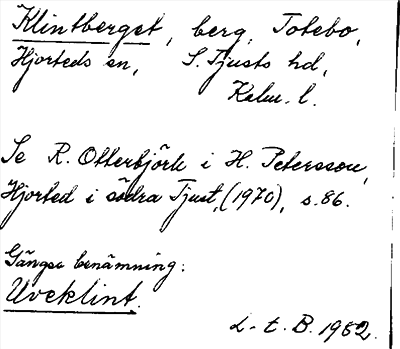 Klintberget, berg, Totebo,
Hjorteds sn, S. Tjusts hd,
Kalm. l.
Se R. Otterbjörk i H. Petersson,
Hjorted i södra Tjust, (1970), s. 86.
Gängse benämning:
Uveklint.
L-t. B. 1982.